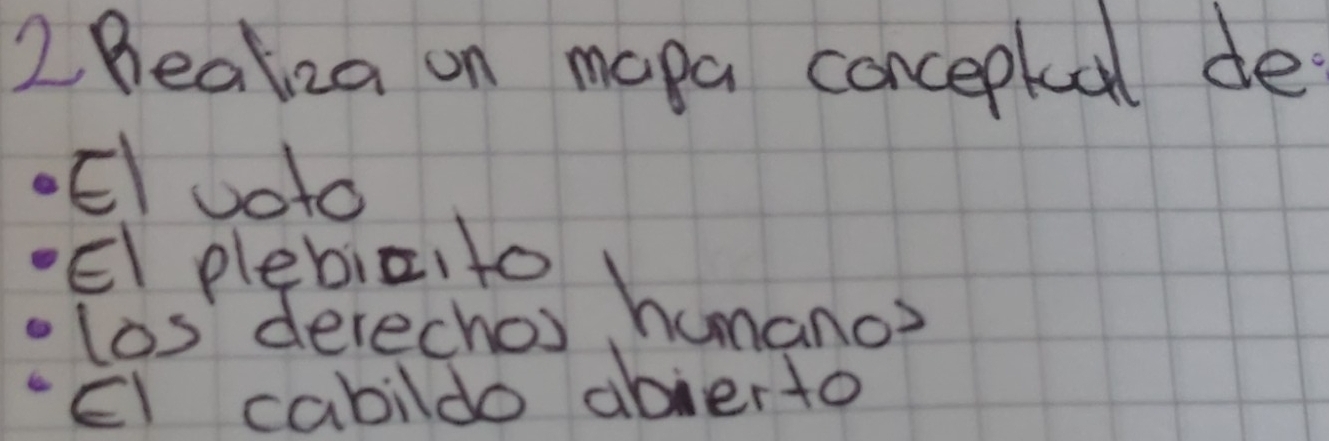 2 Realiza un mapa conceptual de:
• El voto
• El plebicito
• los derechos humanos
• El cabildo abierto